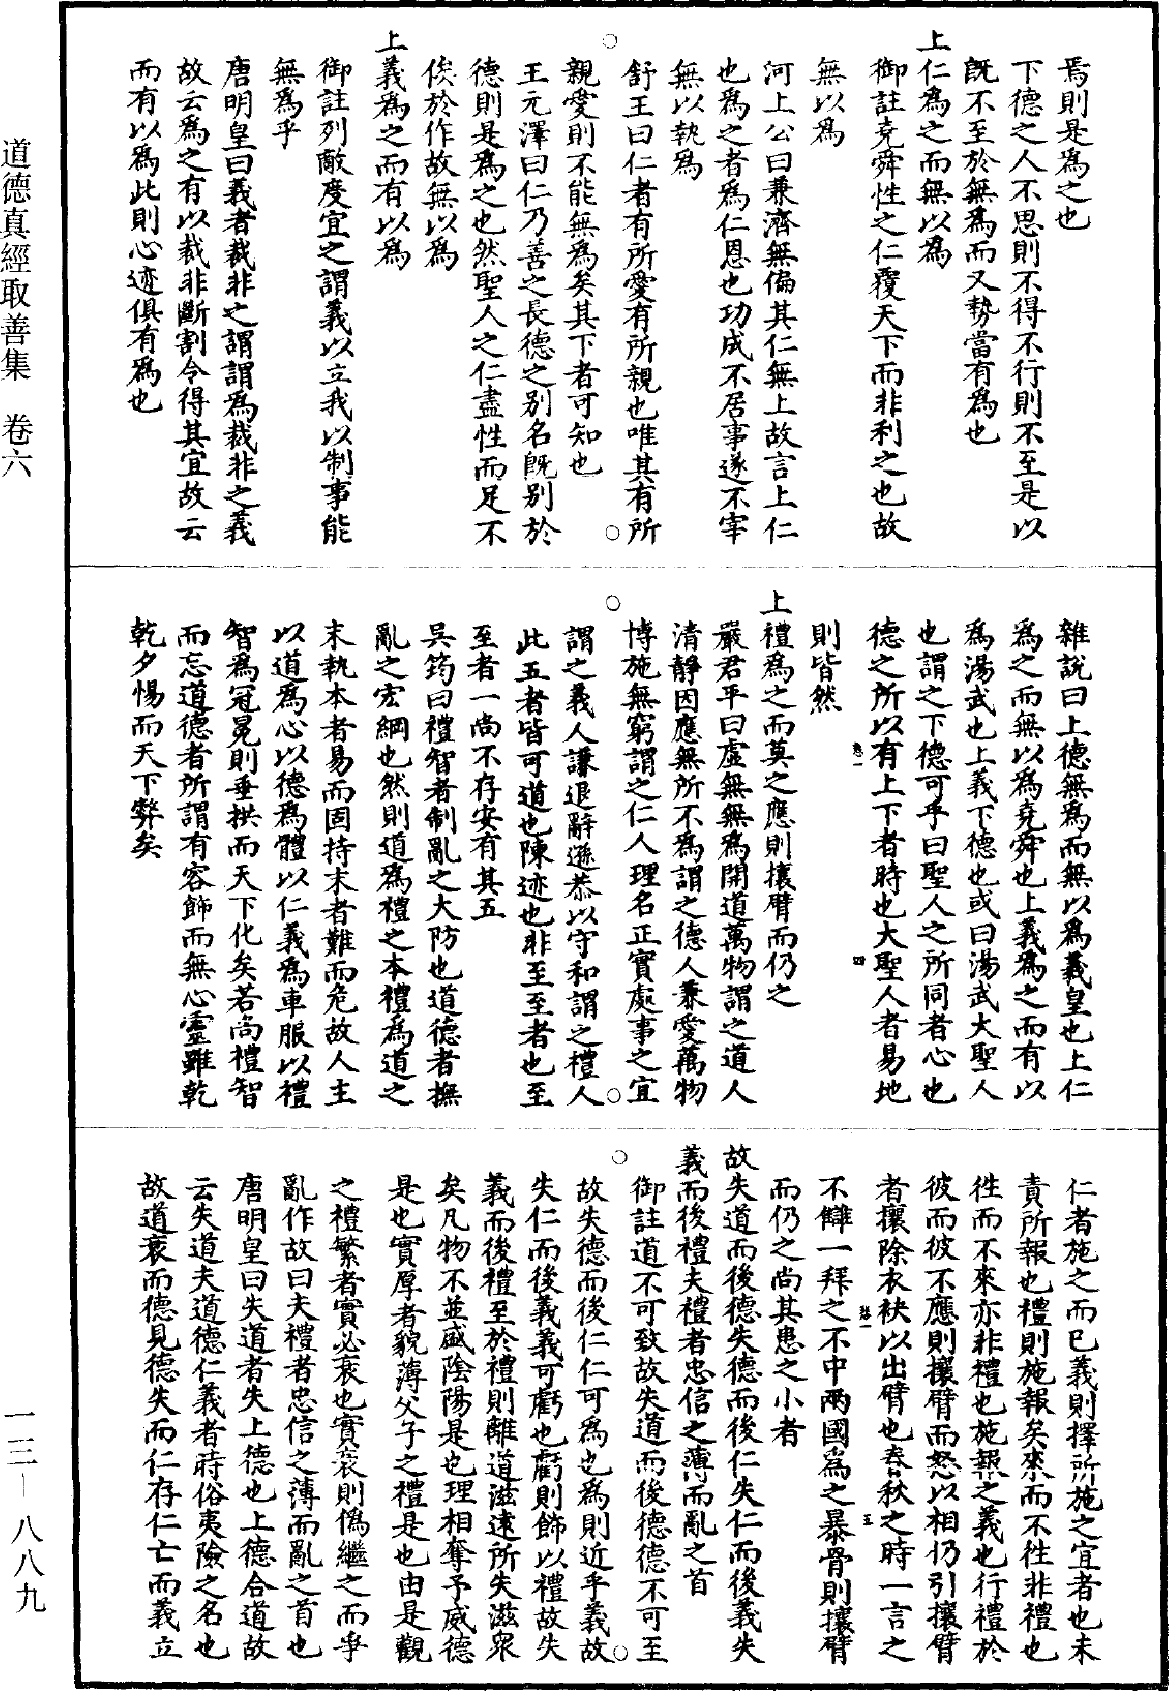 焉則是為之也
下德之人不思則不得不行則不至是以
既不至於無為而又勢當有為也
上仁為之而無以為
御註堯舜性之仁覆天下而非利之也故
無以為
河上公曰兼濟無偏其仁無上故言上仁
也為之者為仁恩也功成不居事遂不宰
無以執為
舒王曰仁者有所愛有所親也唯其有所
親愛則不能無為矣其下者可知也
王元澤曰仁乃善之長德之別名既別於
德則是為之也然聖人之仁盡性而足不
俟於作故無以為
上義為之而有以為
御註列敵度宜之謂義以立我以制事能
無為乎
唐明皇曰義者裁非之謂謂為裁非之義
故云為之有以裁非斷割令得其宜故云
而有以為此則心迹俱有為也
雜說曰上德無為而無以為義皇也上仁
為之而無以為堯舜也上義為之而有以
為湯武也上義下德也或曰湯武大聖人
也謂之下德可乎曰聖人之所同者心也
德之所以有上下者時也大聖人者易地
則皆然
上禮為之而莫之應則攘臂而仍之
嚴君平曰虛無無為開道萬物謂之道人
清靜因應無所不為謂之德人兼愛萬物
博施無窮謂之仁人理名正實處事之宜
謂之義人謙退辭遜恭以守和謂之禮人
此五者皆可道也陳迹也非至至者也至
至者一尚不存安有其五
吳筠曰禮智者制亂之大防也道德者撫
亂之宏綱也然則道為禮之本禮為道之
末執本者易而固持末者難而危故人主
以道為心以德為體以仁義為車服以禮
智為冠冕則垂拱而天下化矣若尚禮智
而忘道德者所謂有容飾而無心靈雖乾
乾夕惕而天下弊矣
仁者施之而已義則擇所施之宜者也未
責所報也禮則施報矣來而不往非禮也
往而不來亦非禮也施報之義也行禮於
彼而彼不應則攘臂而怒以相仍引攘臂
者攘除衣袂以出臂也春秋之時一言之
不讎一拜之不中兩國為之暴骨則攘臂
而仍之尚其患之小者
故失道而後德失德而後仁失仁而後義失
義而後禮夫禮者忠信之薄而亂之首
御註道不可致故失道而後德德不可至
故失德而後仁仁可為也為則近乎義故
失仁而後義義可虧也虧則飾以禮故失
義而後禮至於禮則離道滋遠所失滋眾
矣凡物不並盛陰陽是也理相奪予威德
是也實厚者貌薄父子之禮是也由是觀
之禮繁者實必衰也實衰則偽繼之而爭
亂作故曰夫禮者忠信之薄而亂之首也
唐明皇曰失道者失上德也上德合道故
云失道夫道德仁義者時俗夷險之名也
故道衰而德見德失而仁存仁亡而義立
道德真經取善集　卷六
一三—八八九